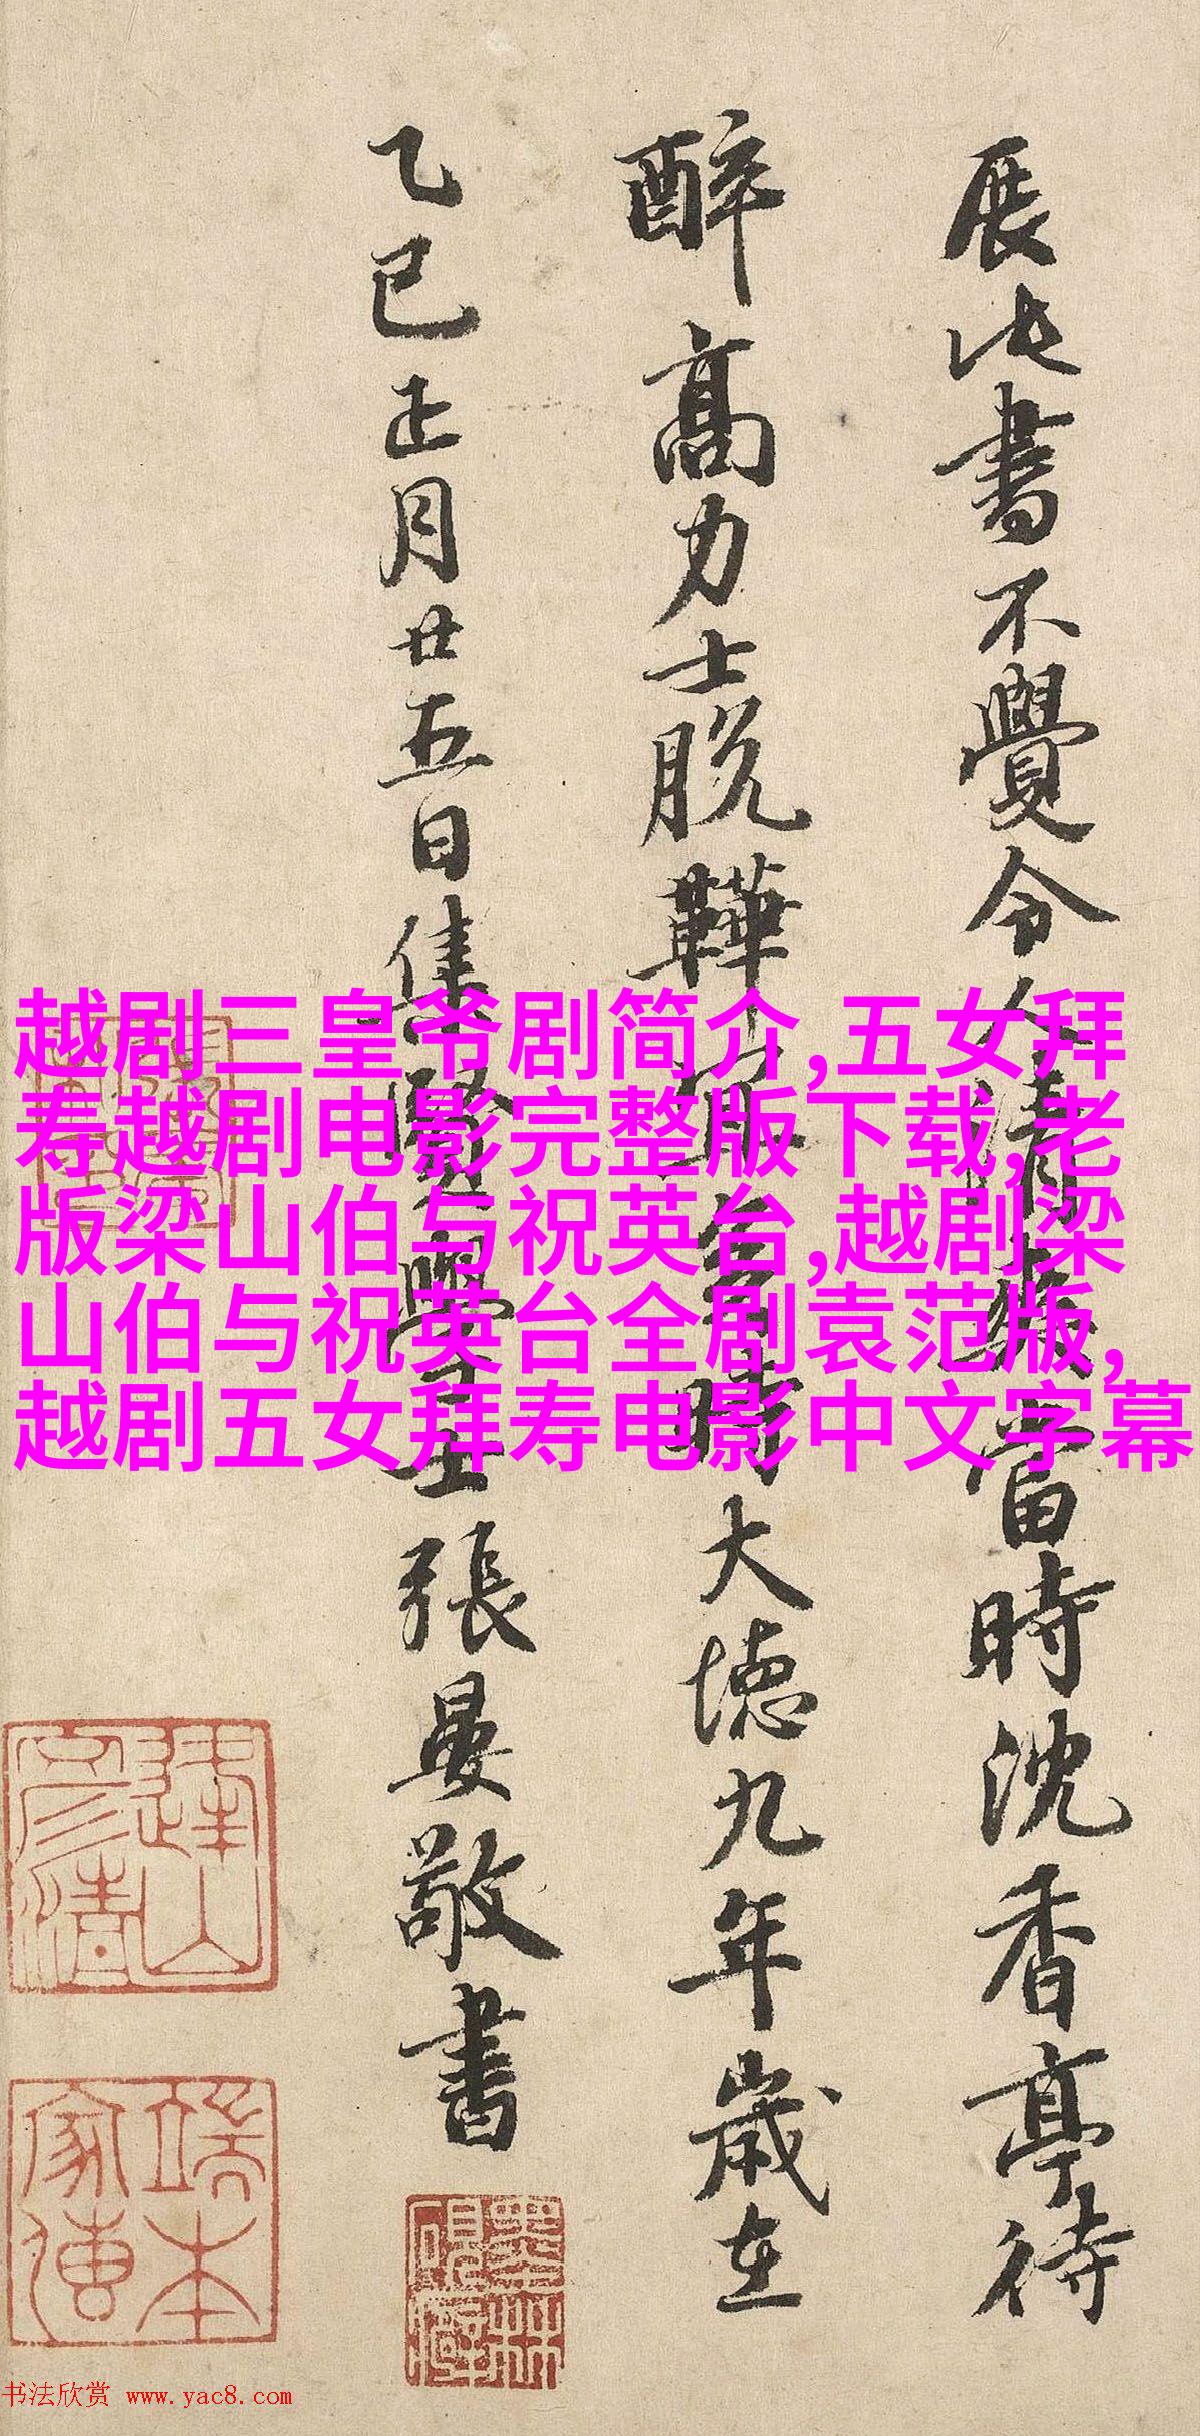 展此書不覺令人清爽當時沈香亭待
醉高力士脫鞾宜時大德九年歲在
乙巳正月廿五日集賢學士張晏敬書
越剧三皇爷剧简介,五女拜
寿越剧电影完整版下载,老
版梁山伯与祝英台,越剧梁
山伯与祝英台全剧袁范版,
越剧五女拜寿电影中文字幕
端本
家傳
书法欣赏 www.yac8.com